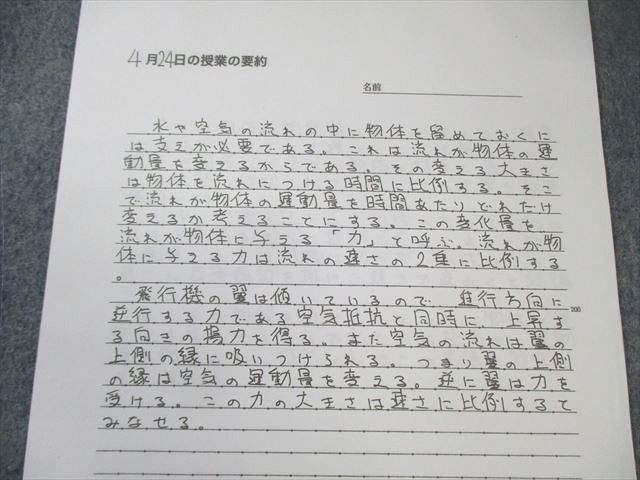 4月24日の授業の要約
名前
水や空気の流れの中に物体を留めておくに
は支えが必要である。これは流れが物体の運
動量を変えるからである。その変える大きさ
は物体を流れにつける時間に比例する。そこ
で流れが物体の運動量を時間あたりどれだけ
変えるか考えることにする。この変化量を、
流れが物体に与える「力」と呼ぶ。流れが物
体に与える力は流れの速さの2乗に比例する
。
飛行機の翼は傾いているので、進行方向に
逆行する力である空気抵抗と同時に、上昇す
200
る向きの揚力を得る。また空気の流れは翼の
上側の縁に吸いつけられる。つまり翼の上側
の縁は空気の運動量を変える。逆に翼は力を
受ける。この力の大きさは速さに比例するて
みなせる。